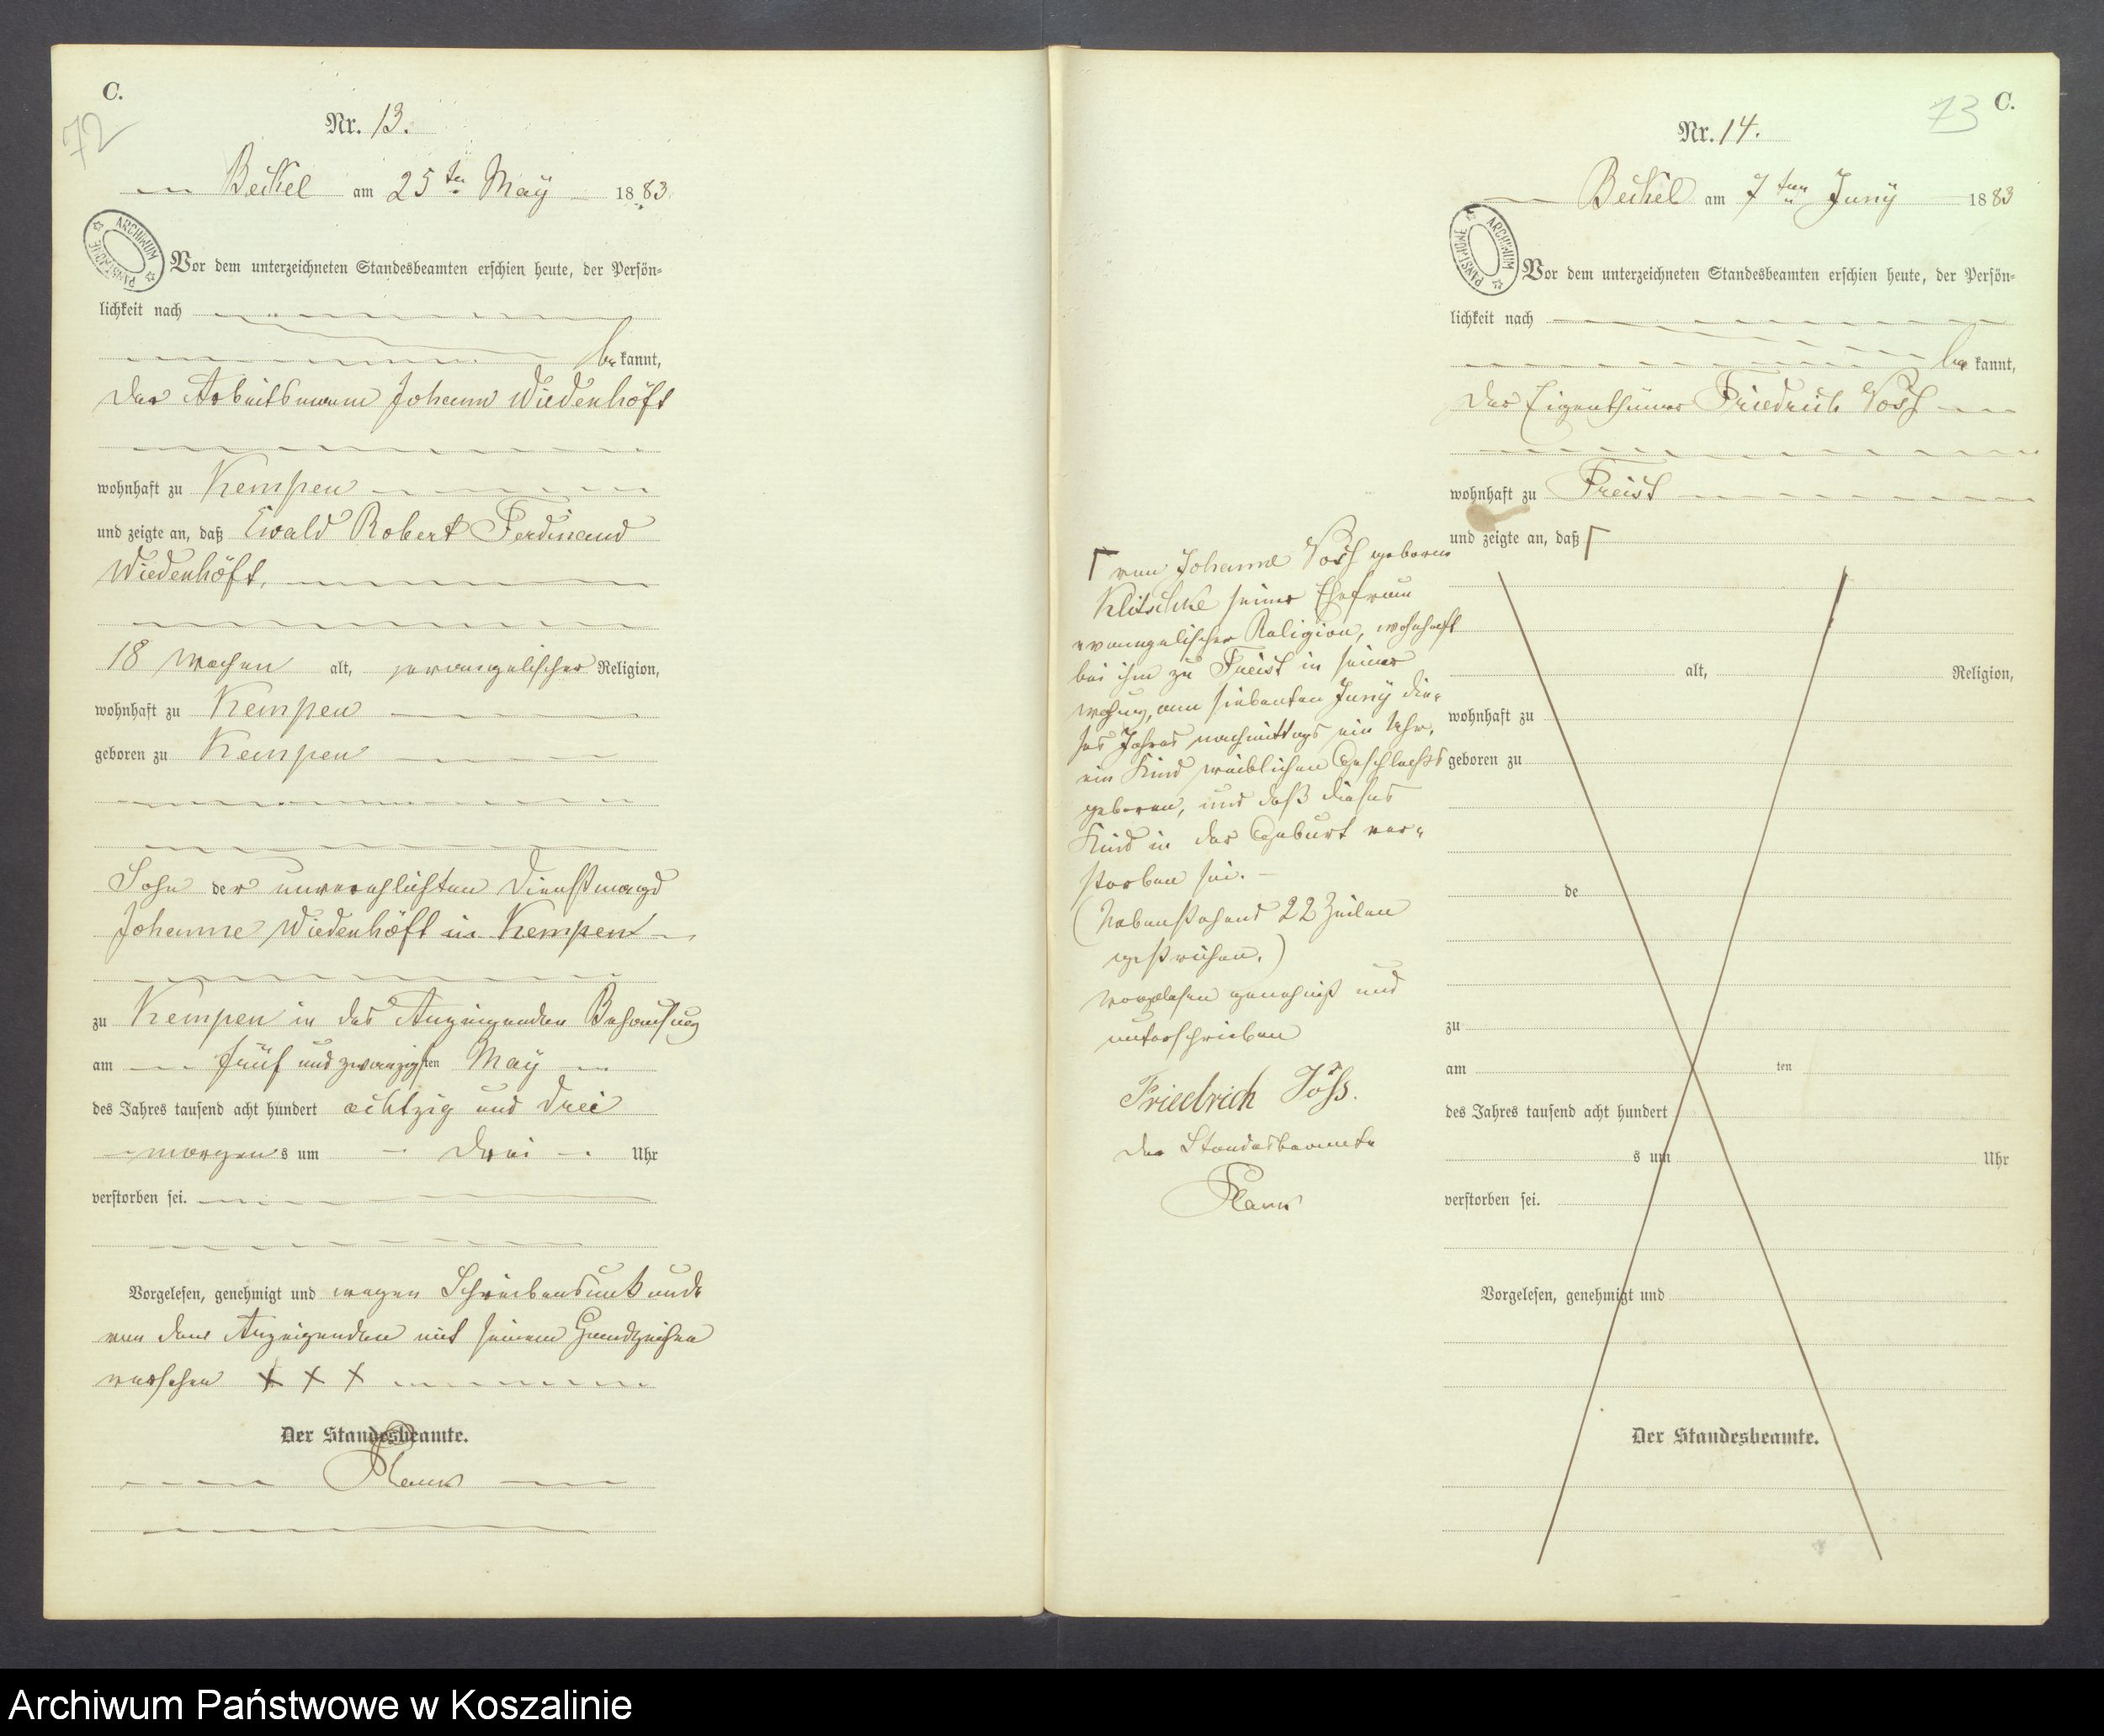 C.
72
Nr. 13.
Beckel am 25ten May 1883.
ARCHIWUM PAŃSTWOWE
Vor dem unterzeichneten Standesbeamten erschien heute, der Persön-
lichkeit nach
bekannt,
der Arbeitsmann Johann Wiedenhöft
wohnhaft zu Kempen
und zeigte an, daß Ewald Robert Ferdinand
Wiedenhöft,
18 Wochen alt, evangelischer Religion,
wohnhaft zu Kempen
geboren zu Kempen
Sohn der unverehlichten Dienstmagd
Johanne Wiedenhöft in Kempen
zu Kempen in des Anzeigenden Behausung
am fünf und zwanzigsten May
des Jahres tausend acht hundert achtzig und drei
morgens um drei Uhr
verstorben sei.
Vorgelesen, genehmigt und wegen Schreibensunkunde
von dem Anzeigenden mit seinem Handzeichen
versehen + + +
Der Standesbeamte.
Plans
73
C.
Nr. 14.
Beckel am 7ten Juny 1883
ARCHIWUM PAŃSTWOWE
Vor dem unterzeichneten Standesbeamten erschien heute, der Persön-
lichkeit nach
bekannt,
der Eigenthümer Friedrich Voss
wohnhaft zu Freist
und zeigte an, daß Γ
Γ von Johanne Voss geborne
Klitschke seiner Ehefrau
evangelischer Religion, wohnhaft
bei ihm zu Freist in seiner
Wohnung, am siebenten Juny die-
ses Jahres nachmittags ein Uhr,
ein Kind weiblichen Geschlechts
geboren, und daß dieses
Kind in der Geburt ver-
storben sei. –
(Nebenstehend 22 Zeilen
gestrichen.)
Vorgelesen genehmigt und
unterschrieben
Friedrich Voss.
Der Standesbeamte
Plans
alt, Religion,
wohnhaft zu
geboren zu
de
zu
am ten
des Jahres tausend acht hundert
s um Uhr
verstorben sei.
Vorgelesen, genehmigt und
Der Standesbeamte.
Archiwum Państwowe w Koszalinie